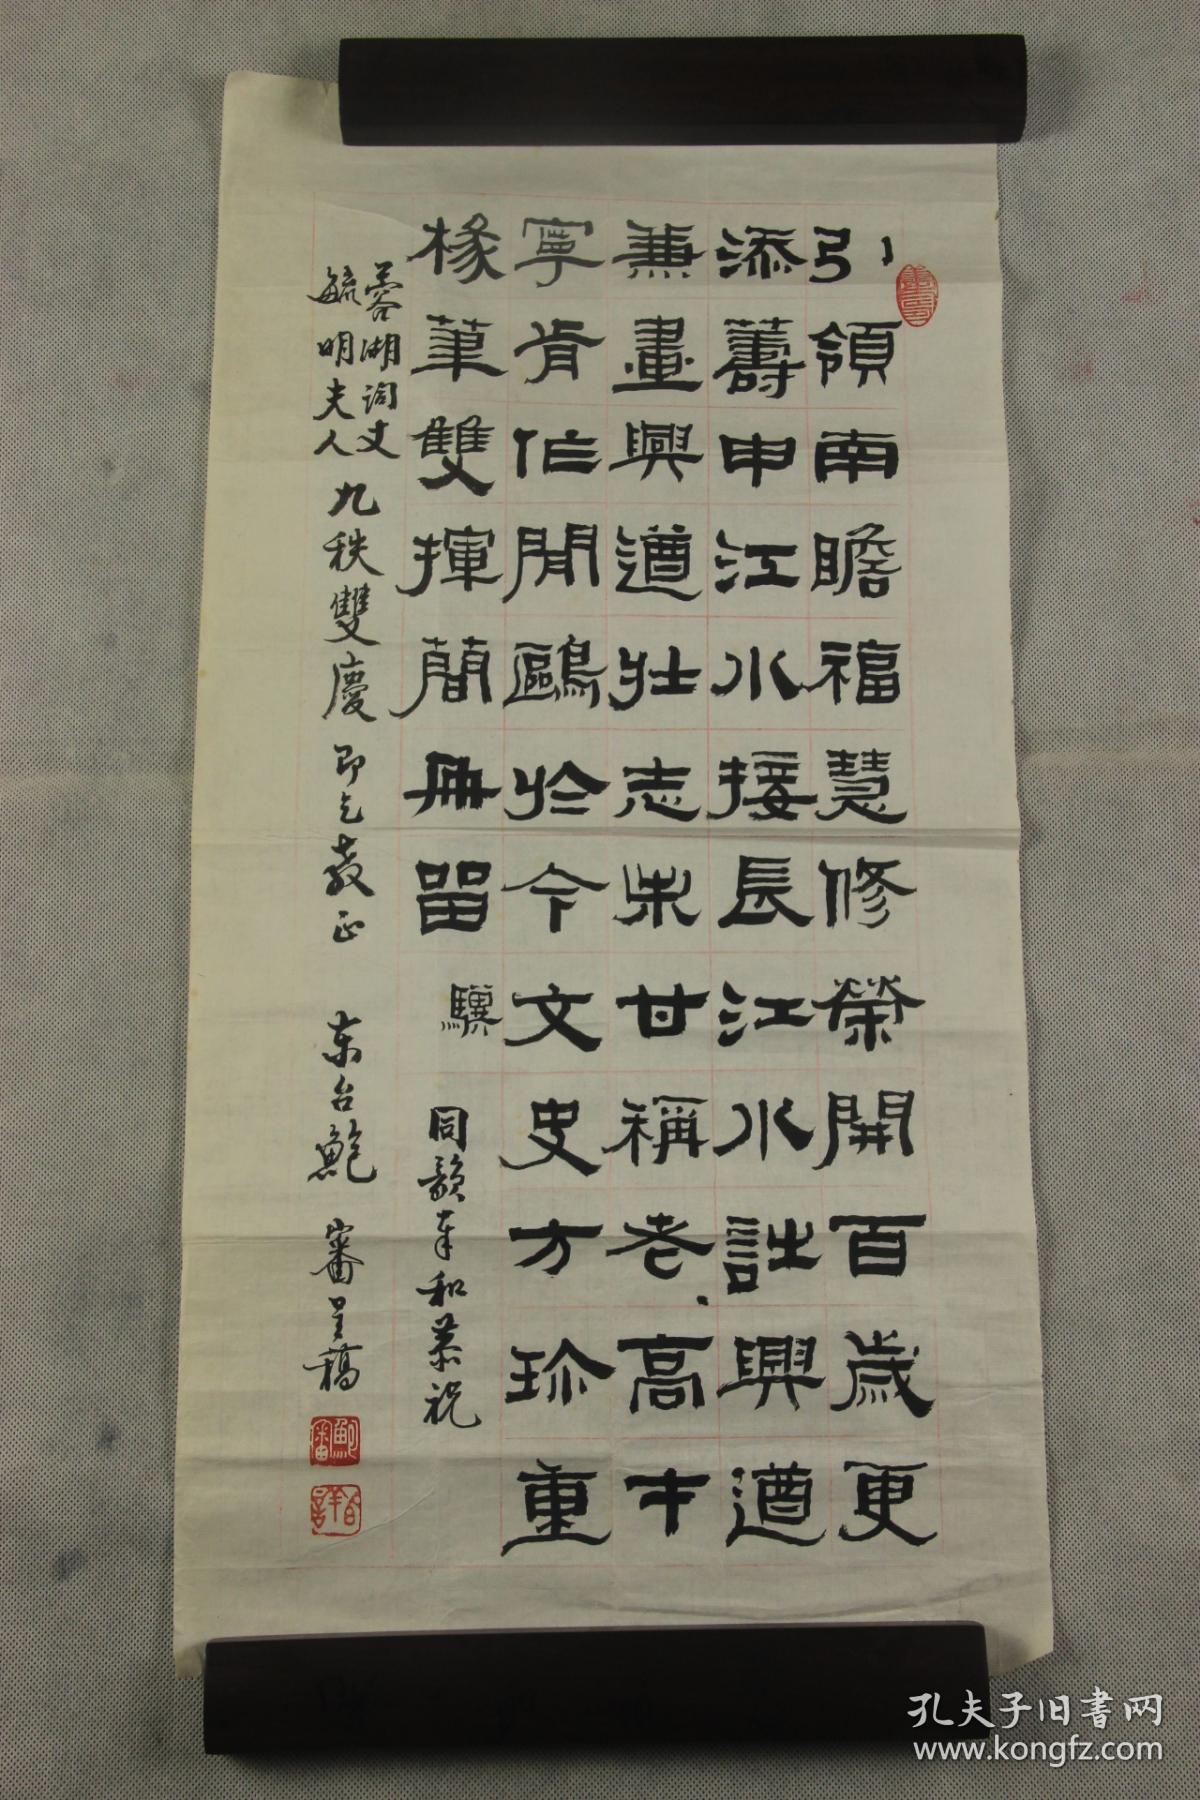 引領南瞻福慧修榮開百歲更
添籌申江水接長江水詩興遒
兼畫興遒壯志未甘稱老、高才
寧肯作閒鷗於今文史方珍重
椽筆雙揮簡冊留 驥 同韻奉和恭祝
蓉湖詞丈
毓明夫人 九秩雙慶 即乞教正 东台鮑審呈稿
鮑審
孔夫子旧书网
www.kongfz.com